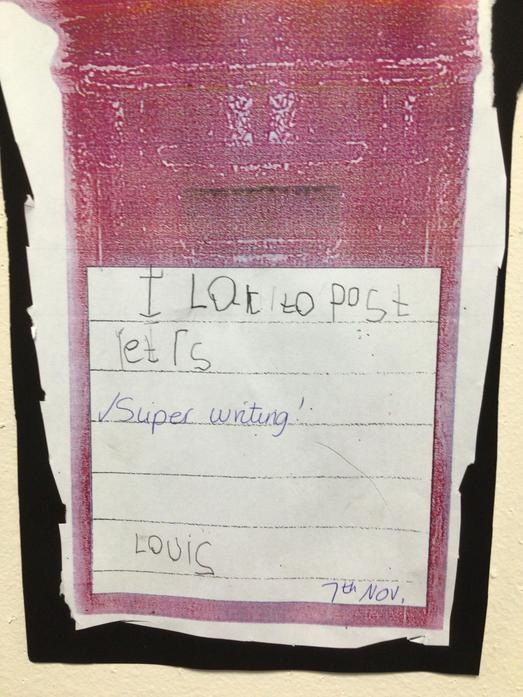 I Lak to post
letrs
✓Super writing!
Louis
7th Nov.